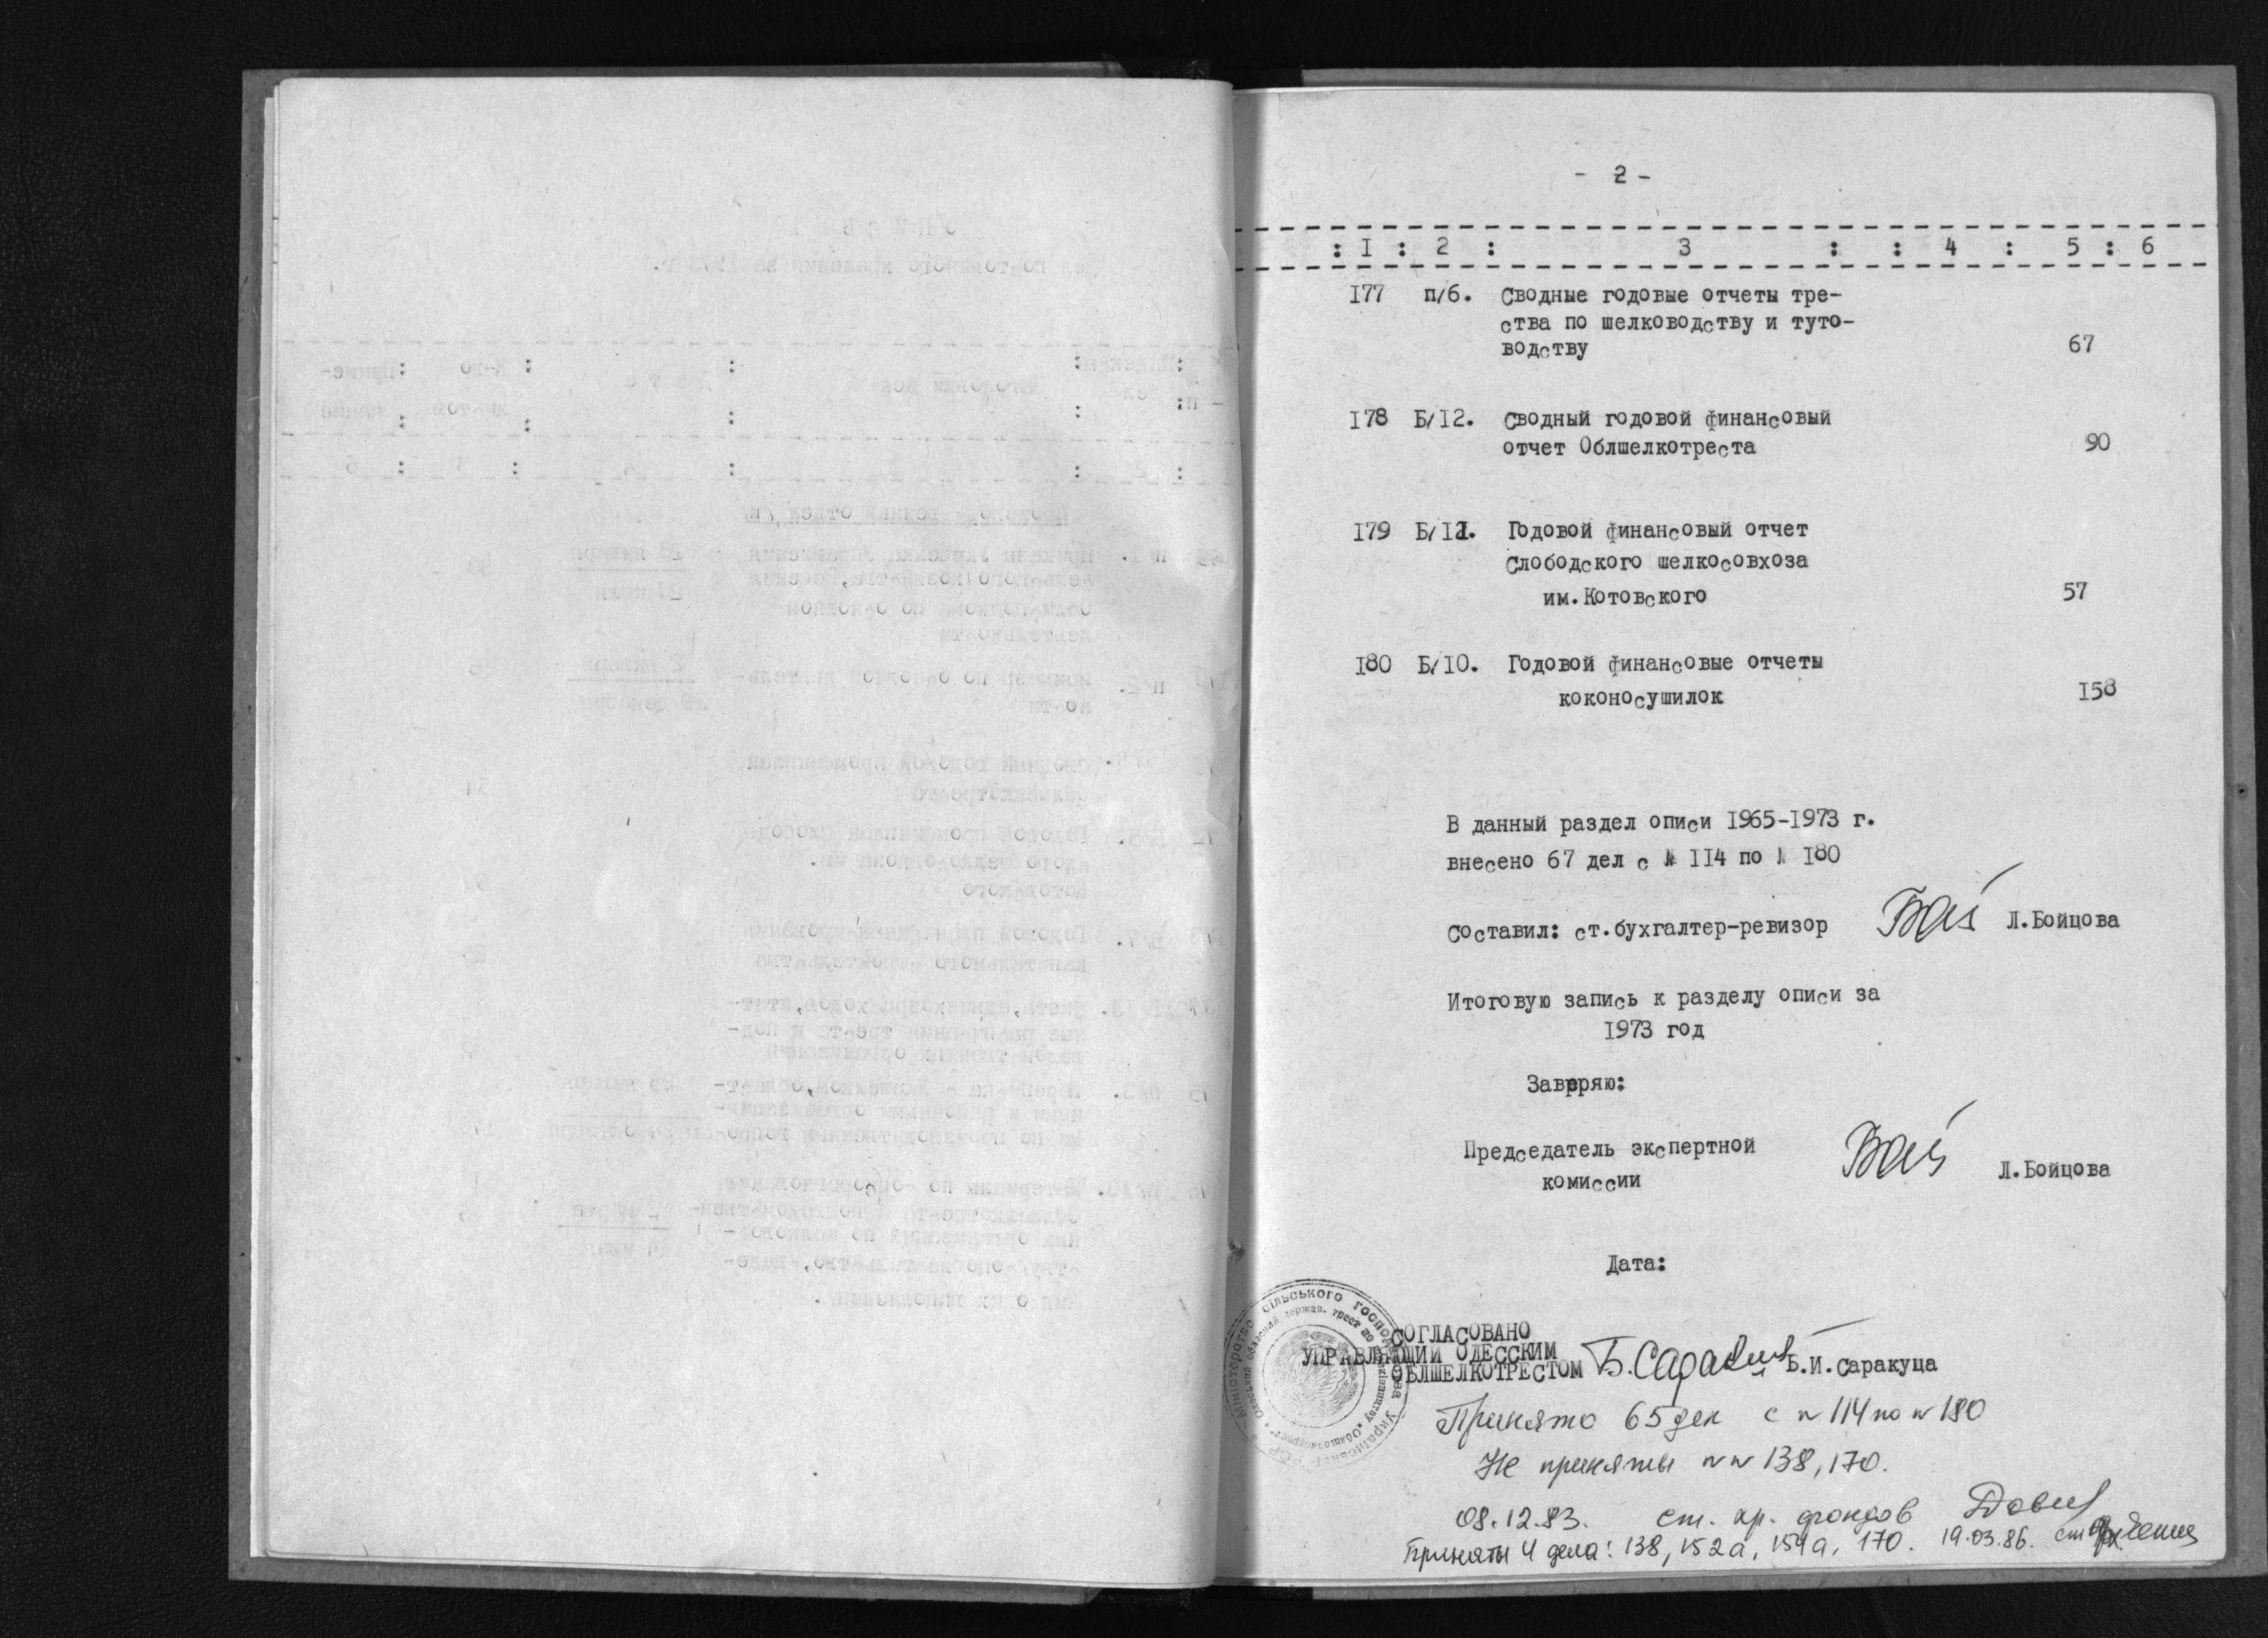 - 2 -
: I : 2 : 3 : : 4 : 5 : 6
177 п/6. Сводные годовые отчеты тре-
ства по шелководству и туто-
водству 67
178 Б/12. Сводный годовой финансовый
отчет Облшелкотреста 90
179 Б/11. Годовой финансовый отчет
Слободского шелкосовхоза
им.Котовского 57
180 Б/10. Годовой финансовые отчеты
коконосушилок 158
В данный раздел описи 1965-1973 г.
внесено 67 дел с № 114 по № 180
Составил: ст.бухгалтер-ревизор Л.Бойцова
Итоговую запись к разделу описи за
1973 год
Заверяю:
Председатель экспертной
комиссии Л.Бойцова
Дата:
СОГЛАСОВАНО
УПРАВЛЯЮЩИЙ ОДЕССКИМ
ОБЛШЕЛКОТРЕСТОМ Б.И.Саракуца
Принято 65 дел с № 114 по № 180
Не приняты №№ 138, 170.
08.12.83. ст. хр. фондов
Приняты 4 дела: 138, 152а, 154а, 170. 19.03.86.